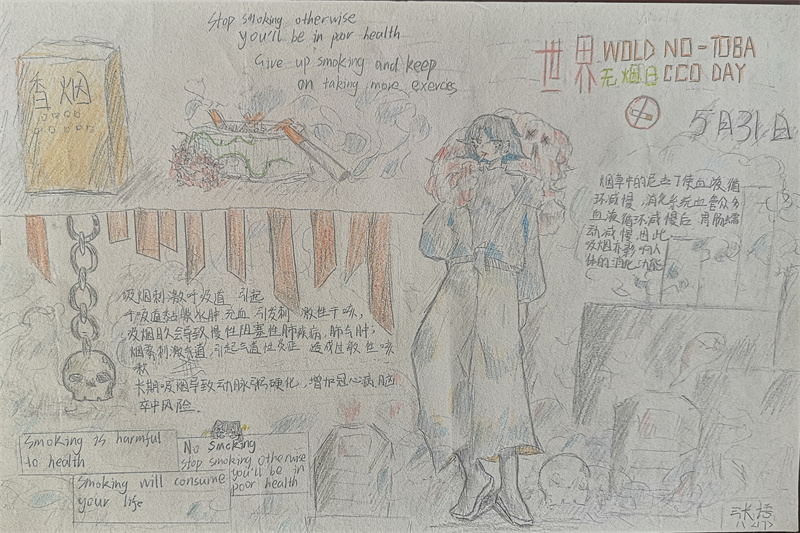 Stop smoking otherwise
you'll be in poor health
Give up smoking and keep
on taking more exerces
世界 WOLD NO-TOBA
无烟日 CCO DAY
5月31日
香烟
烟草中的尼古丁使血液循
环减慢,消化系统血管众多
血液循环减慢后 胃肠蠕
动减慢,因此
吸烟亦影响人
体的消化功能
吸烟刺激呼吸道 引起
呼吸道黏膜水肿充血 引发刺激性干咳,
吸烟日久会导致慢性阻塞性肺疾病,肺气肿;
烟雾刺激气道,引起气道性炎症 造成过敏性咳
长期吸烟导致动脉粥硬化,增加冠心病脑
卒中风险.
Smoking is harmful
to health
No Smoking
stop smoking otherwise
you'll be in
poor health
Smoking will consume
your life